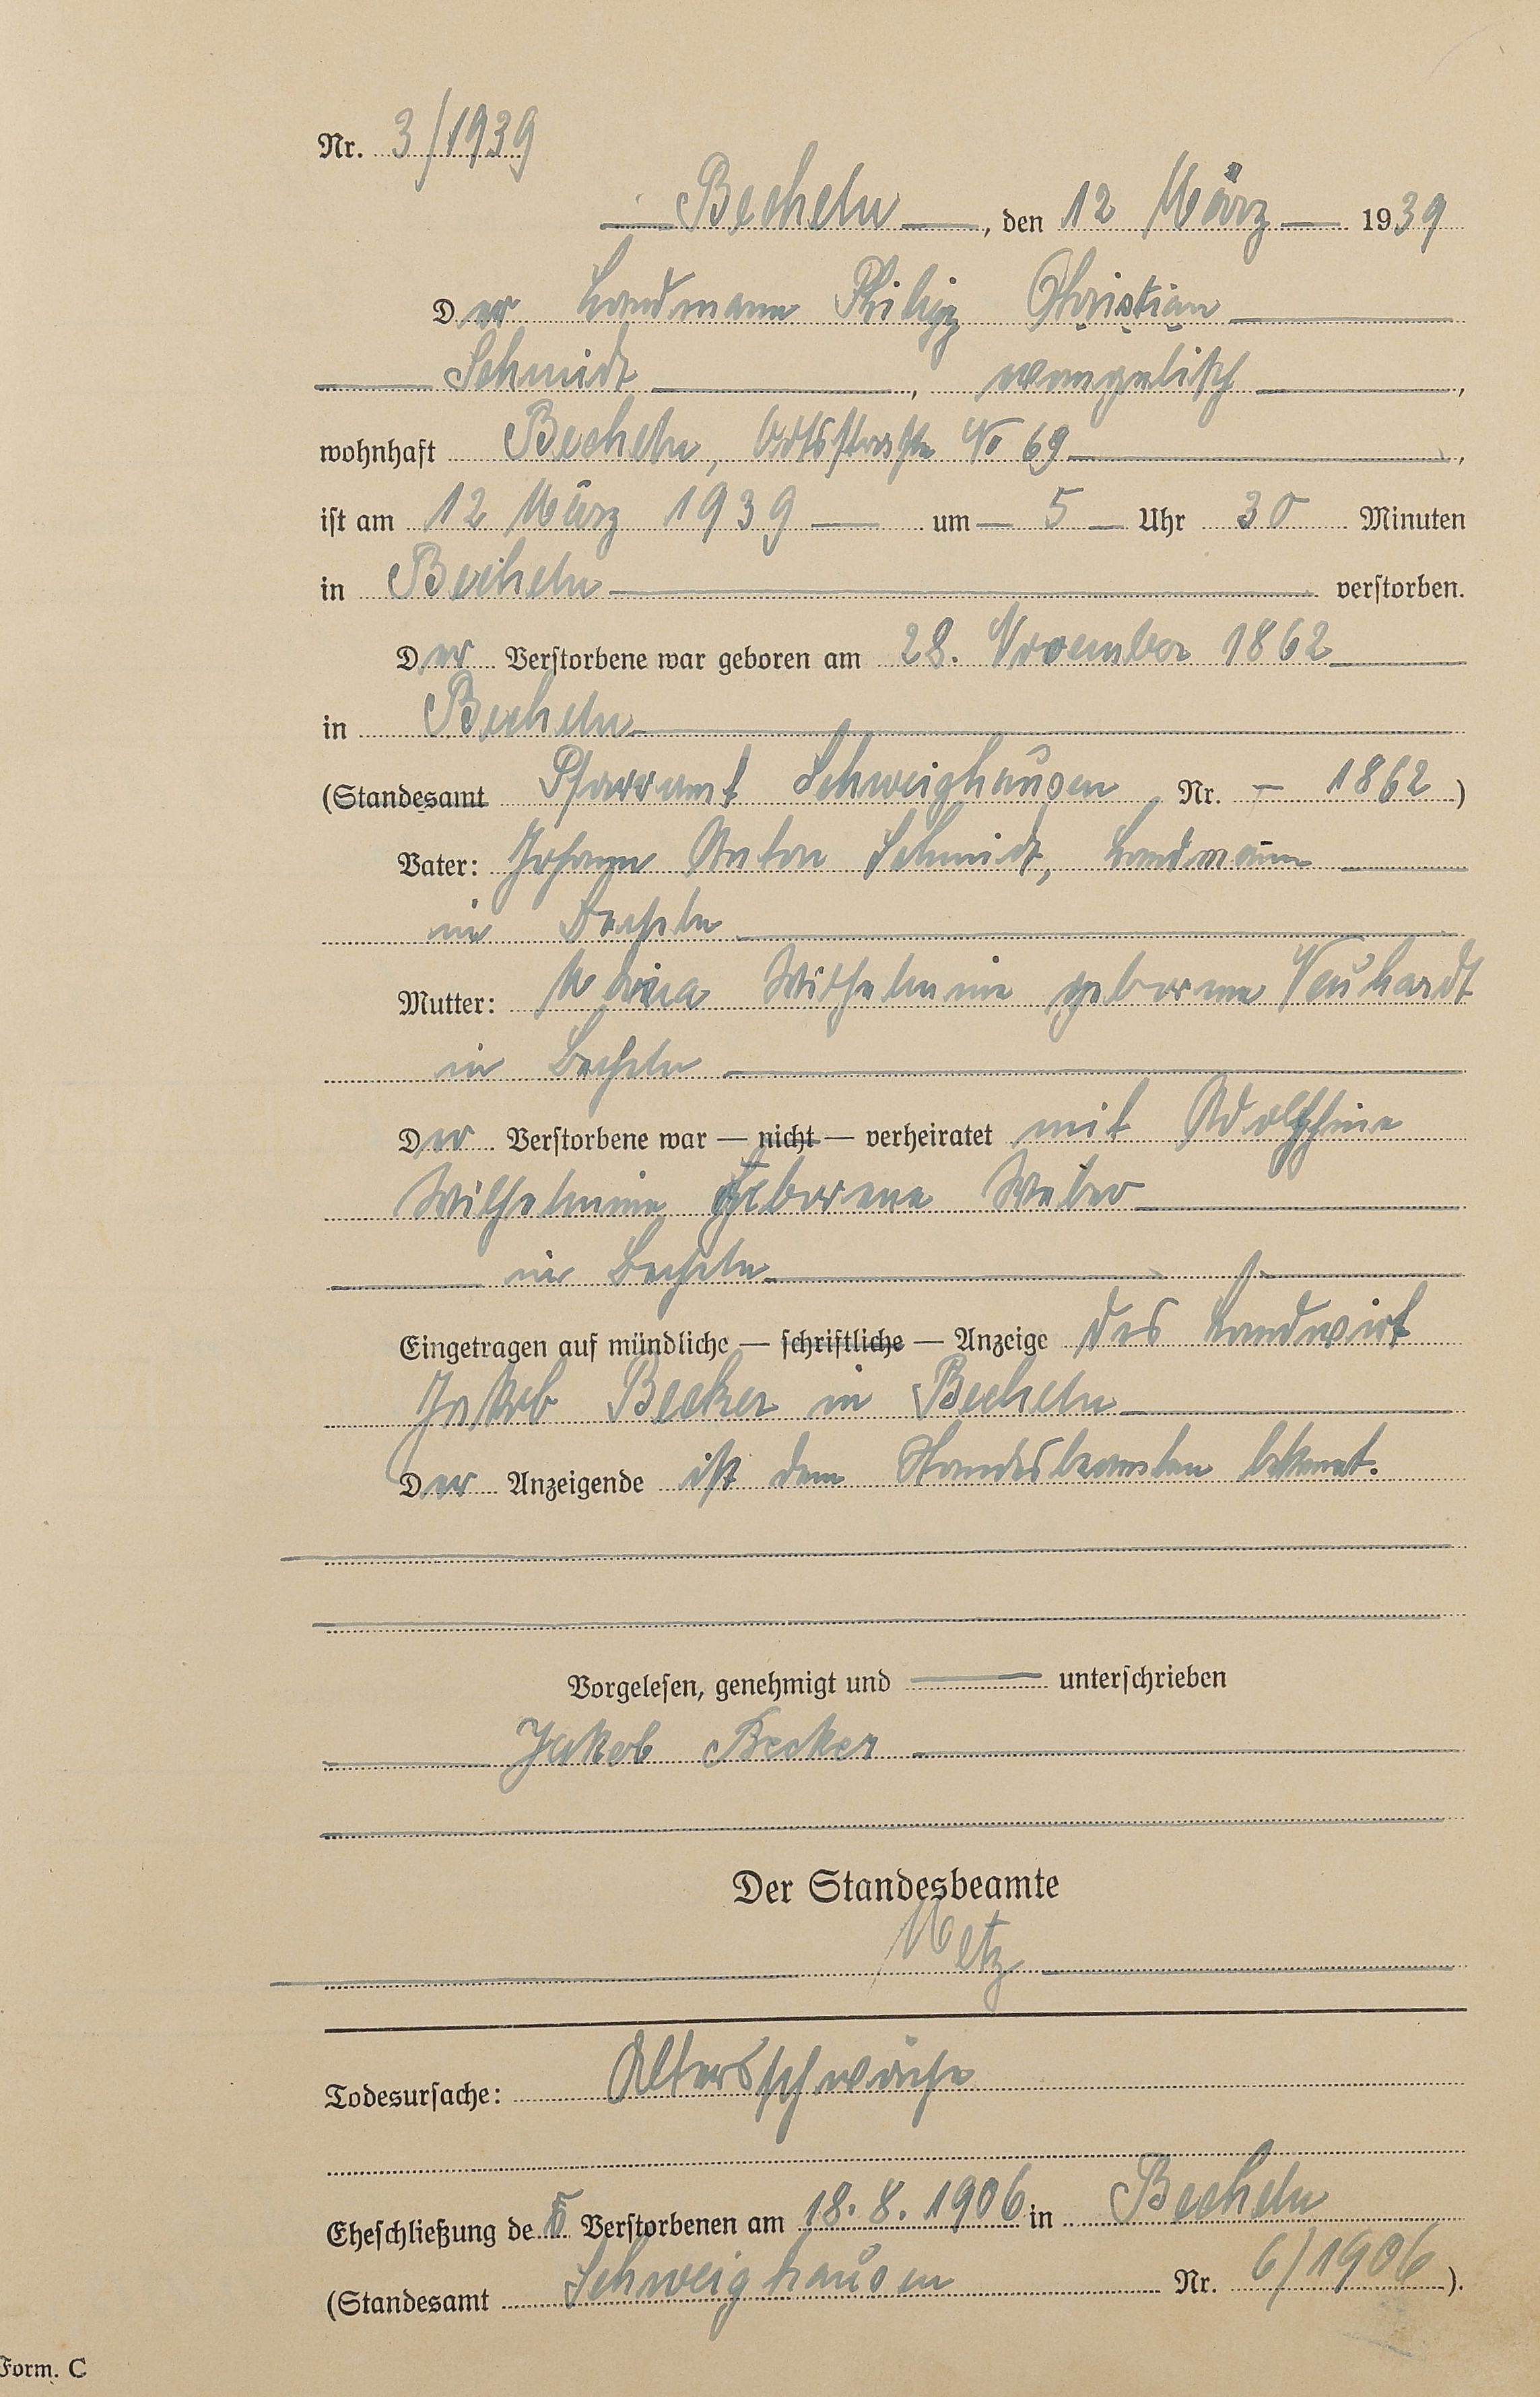 Nr. 3/1939
Becheln, den 12 März 1939
Der Landmann Philipp Christian
Schmidt, evangelisch,
wohnhaft Becheln, Ortsstraße No 69,
ist am 12 März 1939 um 5 Uhr 30 Minuten
in Becheln verstorben.
Der Verstorbene war geboren am 28. November 1862
in Becheln
(Standesamt Pfarramt Schweighausen Nr. — 1862)
Vater: Johann Anton Schmidt, Landmann
in Becheln
Mutter: Maria Wilhelmine geborene Neuhardt
in Becheln
Der Verstorbene war — nicht — verheiratet mit Adolphine
Wilhelmine geborene Weber
in Becheln
Eingetragen auf mündliche — schriftliche — Anzeige des Landwirt
Jakob Becker in Becheln
Der Anzeigende ist dem Standesbeamten bekannt.
Vorgelesen, genehmigt und — unterschrieben
Jakob Becker
Der Standesbeamte
Metz
Todesursache: Altersschwäche
Eheschließung des Verstorbenen am 18.8.1906 in Becheln
(Standesamt Schweighausen Nr. 6/1906).
Form. C